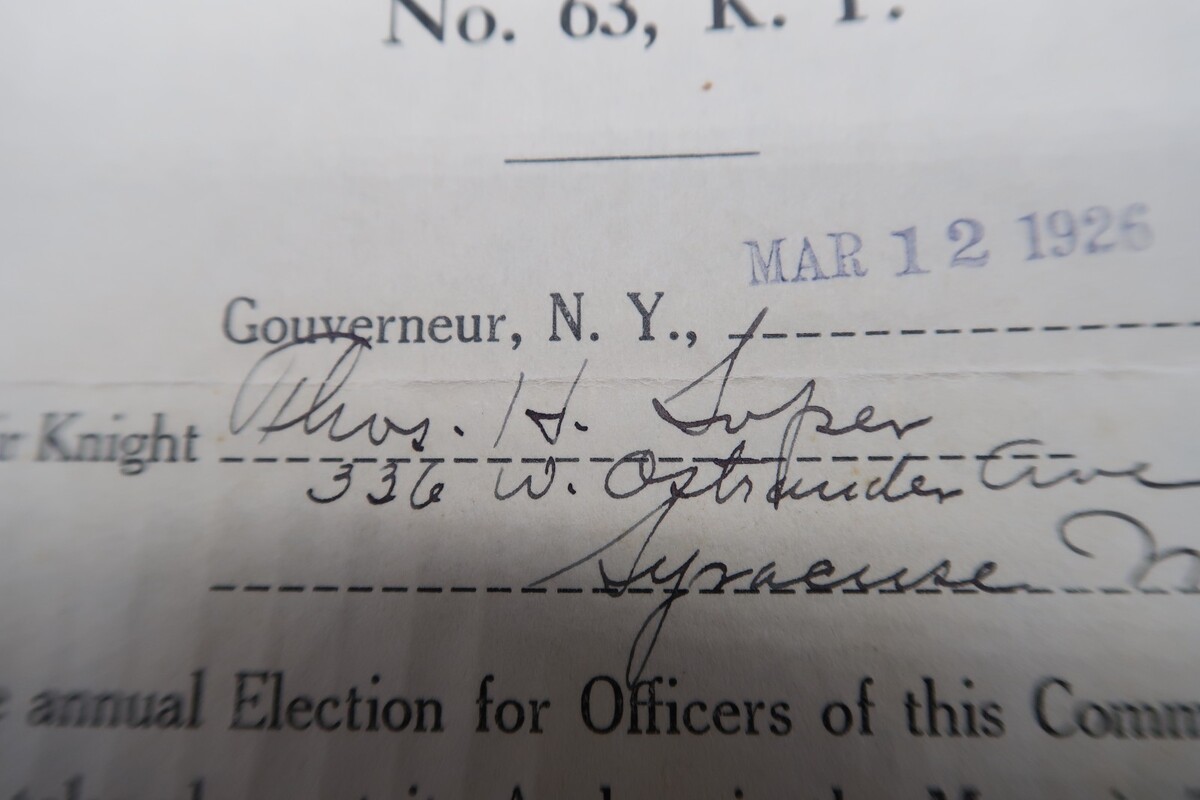 No. 63, K. T.
MAR 12 1926
Gouverneur, N. Y.,
Knight Thos. H. Soper
336 W. Ostrander Ave
Syracuse N
annual Election for Officers of this Comm